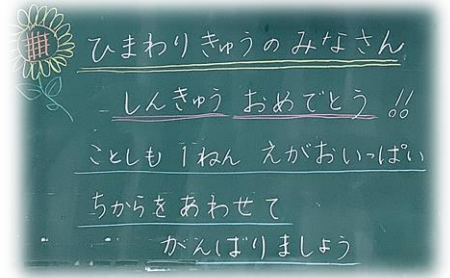 ひまわりきゅうのみなさん
しんきゅう おめでとう!!
ことしも 1ねん えがおいっぱい
ちからをあわせて
がんばりましょう